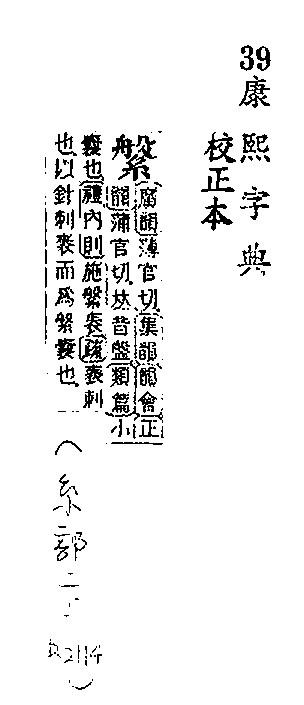 39康熙字典
校正本
縏
廣韻薄官切集韻韻會正
韻蒲官切𠀤音盤類篇小
囊也禮內則施縏袠疏袠刺
也以針刺袠而為縏囊也
(糸部
2114)